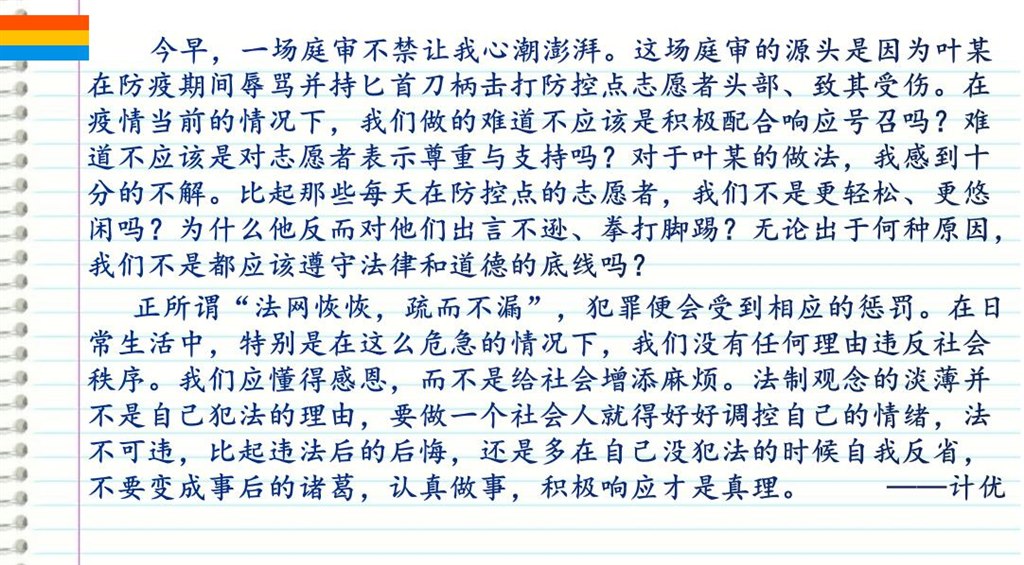 今早，一场庭审不禁让我心潮澎湃。这场庭审的源头是因为叶某
在防疫期间辱骂并持匕首刀柄击打防控点志愿者头部、致其受伤。在
疫情当前的情况下，我们做的难道不应该是积极配合响应号召吗？难
道不应该是对志愿者表示尊重与支持吗？对于叶某的做法，我感到十
分的不解。比起那些每天在防控点的志愿者，我们不是更轻松、更悠
闲吗？为什么他反而对他们出言不逊、拳打脚踢？无论出于何种原因，
我们不是都应该遵守法律和道德的底线吗？
正所谓“法网恢恢，疏而不漏”，犯罪便会受到相应的惩罚。在日
常生活中，特别是在这么危急的情况下，我们没有任何理由违反社会
秩序。我们应懂得感恩，而不是给社会增添麻烦。法制观念的淡薄并
不是自己犯法的理由，要做一个社会人就得好好调控自己的情绪，法
不可违，比起违法后的后悔，还是多在自己没犯法的时候自我反省，
不要变成事后的诸葛，认真做事，积极响应才是真理。 ——计优